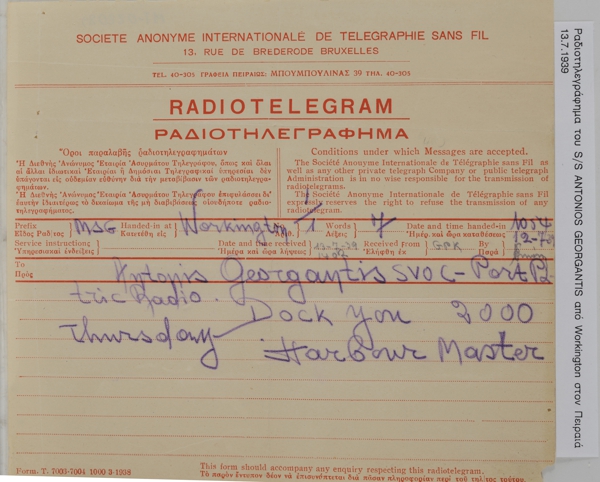 SOCIETE ANONYME INTERNATIONALE DE TELEGRAPHIE SANS FIL
13, RUE DE BREDERODE BRUXELLES
TEL. 40-305 ΓΡΑΦΕΙΑ ΠΕΙΡΑΙΩΣ: ΜΠΟΥΜΠΟΥΛΙΝΑΣ 39 ΤΗΛ. 40-305
RADIOTELEGRAM
ΡΑΔΙΟΤΗΛΕΓΡΑΦΗΜΑ
Ὅροι παραλαβῆς ραδιοτηλεγραφημάτων
Ἡ Διεθνὴς Ἀνώνυμος Ἑταιρία Ἀσυρμάτου Τηλεγράφου, ὅπως καὶ ὅλαι
αἱ ἄλλαι ἰδιωτικαὶ Ἑταιρίαι ἢ Δημόσιαι Τηλεγραφικαὶ ὑπηρεσίαι δὲν
ὑπόγονται εἰς οὐδεμίαν εὐθύνην διὰ τὴν μεταβίβασιν τῶν ραδιοτηλεγρα-
φημάτων.
Ἡ Διεθνὴς Ἀνώνυμος Ἑταιρία Ἀσυρμάτου Τηλεγράφου ἐπιφυλάσσει δι'
ἑαυτὴν ἰδιαιτέρως τὸ δικαίωμα τῆς μὴ διαβιβάσεως οἱουδήποτε ραδιο-
τηλεγραφήματος.
Conditions under which Messages are accepted.
The Société Anonyme Internationale de Télégraphie sans Fil as
well as any other private telegraph Company or public telegraph
Administration is in no wise responsible for the transmission of
radiotelegrams.
The Société Anonyme Internationale de Télégraphie sans Fil
expressly reserves the right to refuse the transmission of any
radiotelegram.
Prefix MSG Handed-in at Workington Words 7 Date and time handed-in 1054
Εἶδος Ραδ/τος Κατετέθη εἰς Λέξεις Ἡμέρ. καὶ ὥρα καταθέσεως
Service instructions Date and time received 13-7-39 Received from GPK By
Ὑπηρεσιακαὶ ἐνδείξεις Ἡμέρα καὶ ὥρα λήψεως Ἐλήφθη ἐκ Παρὰ
To Antonis Georgantis SVOC - Port P
Πρὸς
tric Radio.
Dock you 2000
Thursday
Harbour Master
Form. T. 7003-7004 1000 3-1938
This form should accompany any enquiry respecting this radiotelegram.
Τὸ παρὸν ἔντυπον δέον νὰ ἐπισυνάπτεται διὰ πᾶσαν πληροφορίαν περὶ τοῦ
Ραδιοτηλεγράφημα του S/S ANTONIOS GEORGANTIS από Workington στον Πειραιά
13.7.1939